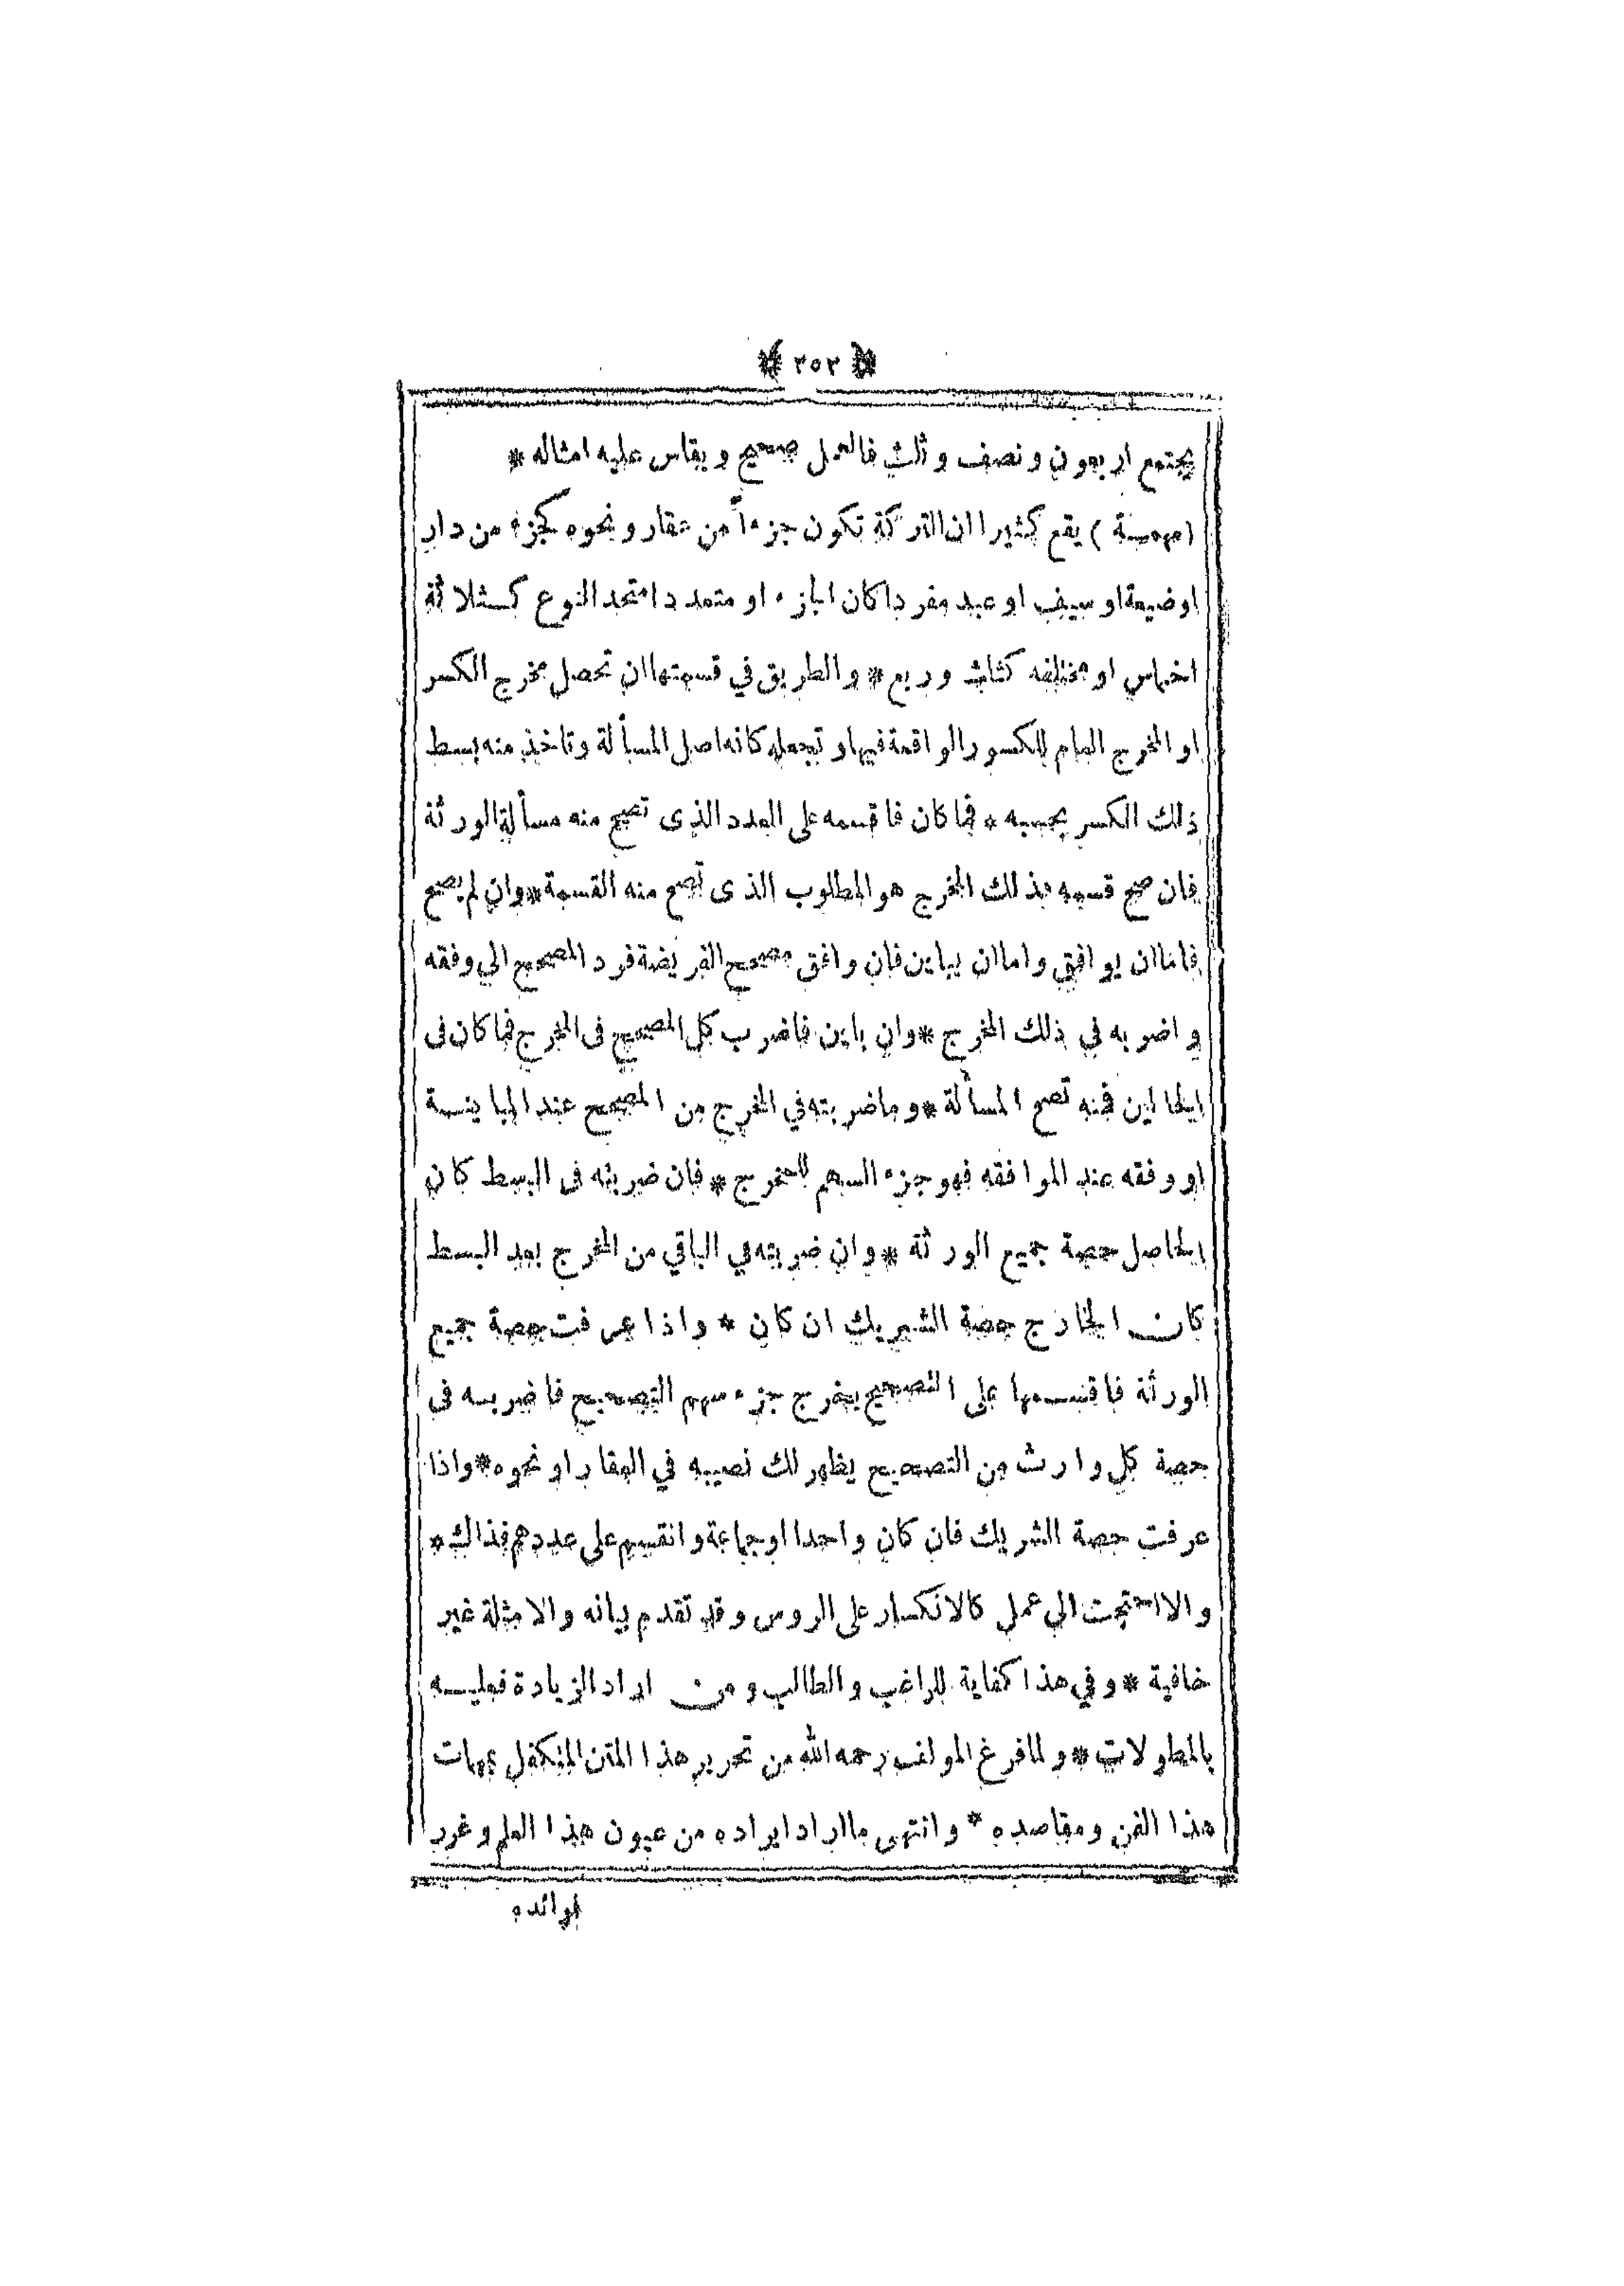 * ٢٥٢ *
يجتمع اربعون ونصف وثلث فالعمل صحيح ويقاس عليه امثاله *
(مهمة) يقع كثيرا ان التركة تكون جزءاً من عقار ونحوه كجزء من دار
او ضيعة او سيف او عبد مفردا كان الجزء او متعددا متحد النوع كثلاثة
اخماس او مختلفه كثلث وربع * والطريق في قسمتها ان تحصل مخرج الكسر
او المخرج العام للكسور الواقعة فيها وتجعله كانه اصل المسألة وتاخذ منه بسط
ذلك الكسر بحسبه * فما كان فاقسمه على العدد الذى تصح منه مسألة الورثة
فان صح قسمه فذلك المخرج هو المطلوب الذى تصح منه القسمة * وان لم يصح
فاما ان يوافق واما ان يباين فان وافق مصحح الفريضة فرد المصحح الي وفقه
واضربه في ذلك المخرج * وان باين فاضرب كل المصحح فى المخرج فما كان فى
الحالين فمنه تصح المسألة * وما ضربته في المخرج من المصحح عند المباينة
او وفقه عند الموافقه فهو جزء السهم للمخرج * فان ضربته فى البسط كان
الحاصل حصة جميع الورثة * وان ضربته في الباقي من المخرج بعد البسط
كان الخارج حصة الشريك ان كان * واذا عرفت حصة جميع
الورثة فاقسمها على التصحيح يخرج جزء سهم التصحيح فاضربه فى
حصة كل وارث من التصحيح يظهر لك نصيبه في العقار او نحوه * واذا
عرفت حصة الشريك فان كان واحدا او جماعة وانقسم على عددهم فذاك *
والا احتجت الي عمل كالانكسار على الروس وقد تقدم بيانه والامثلة غير
خافية * وفي هذا كفاية للراغب والطالب ومن اراد الزيادة فعليه
بالمطولات * ولما فرغ المولف رحمه الله من تحرير هذا المتن المتكفل بمهات
هذا الفن ومقاصده * وانتهى ما اراد ايراده من عيون هذا العلم وغرر